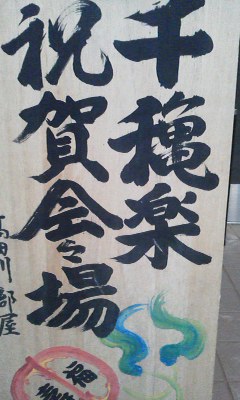 千穐楽
祝賀会々場
高田川部屋